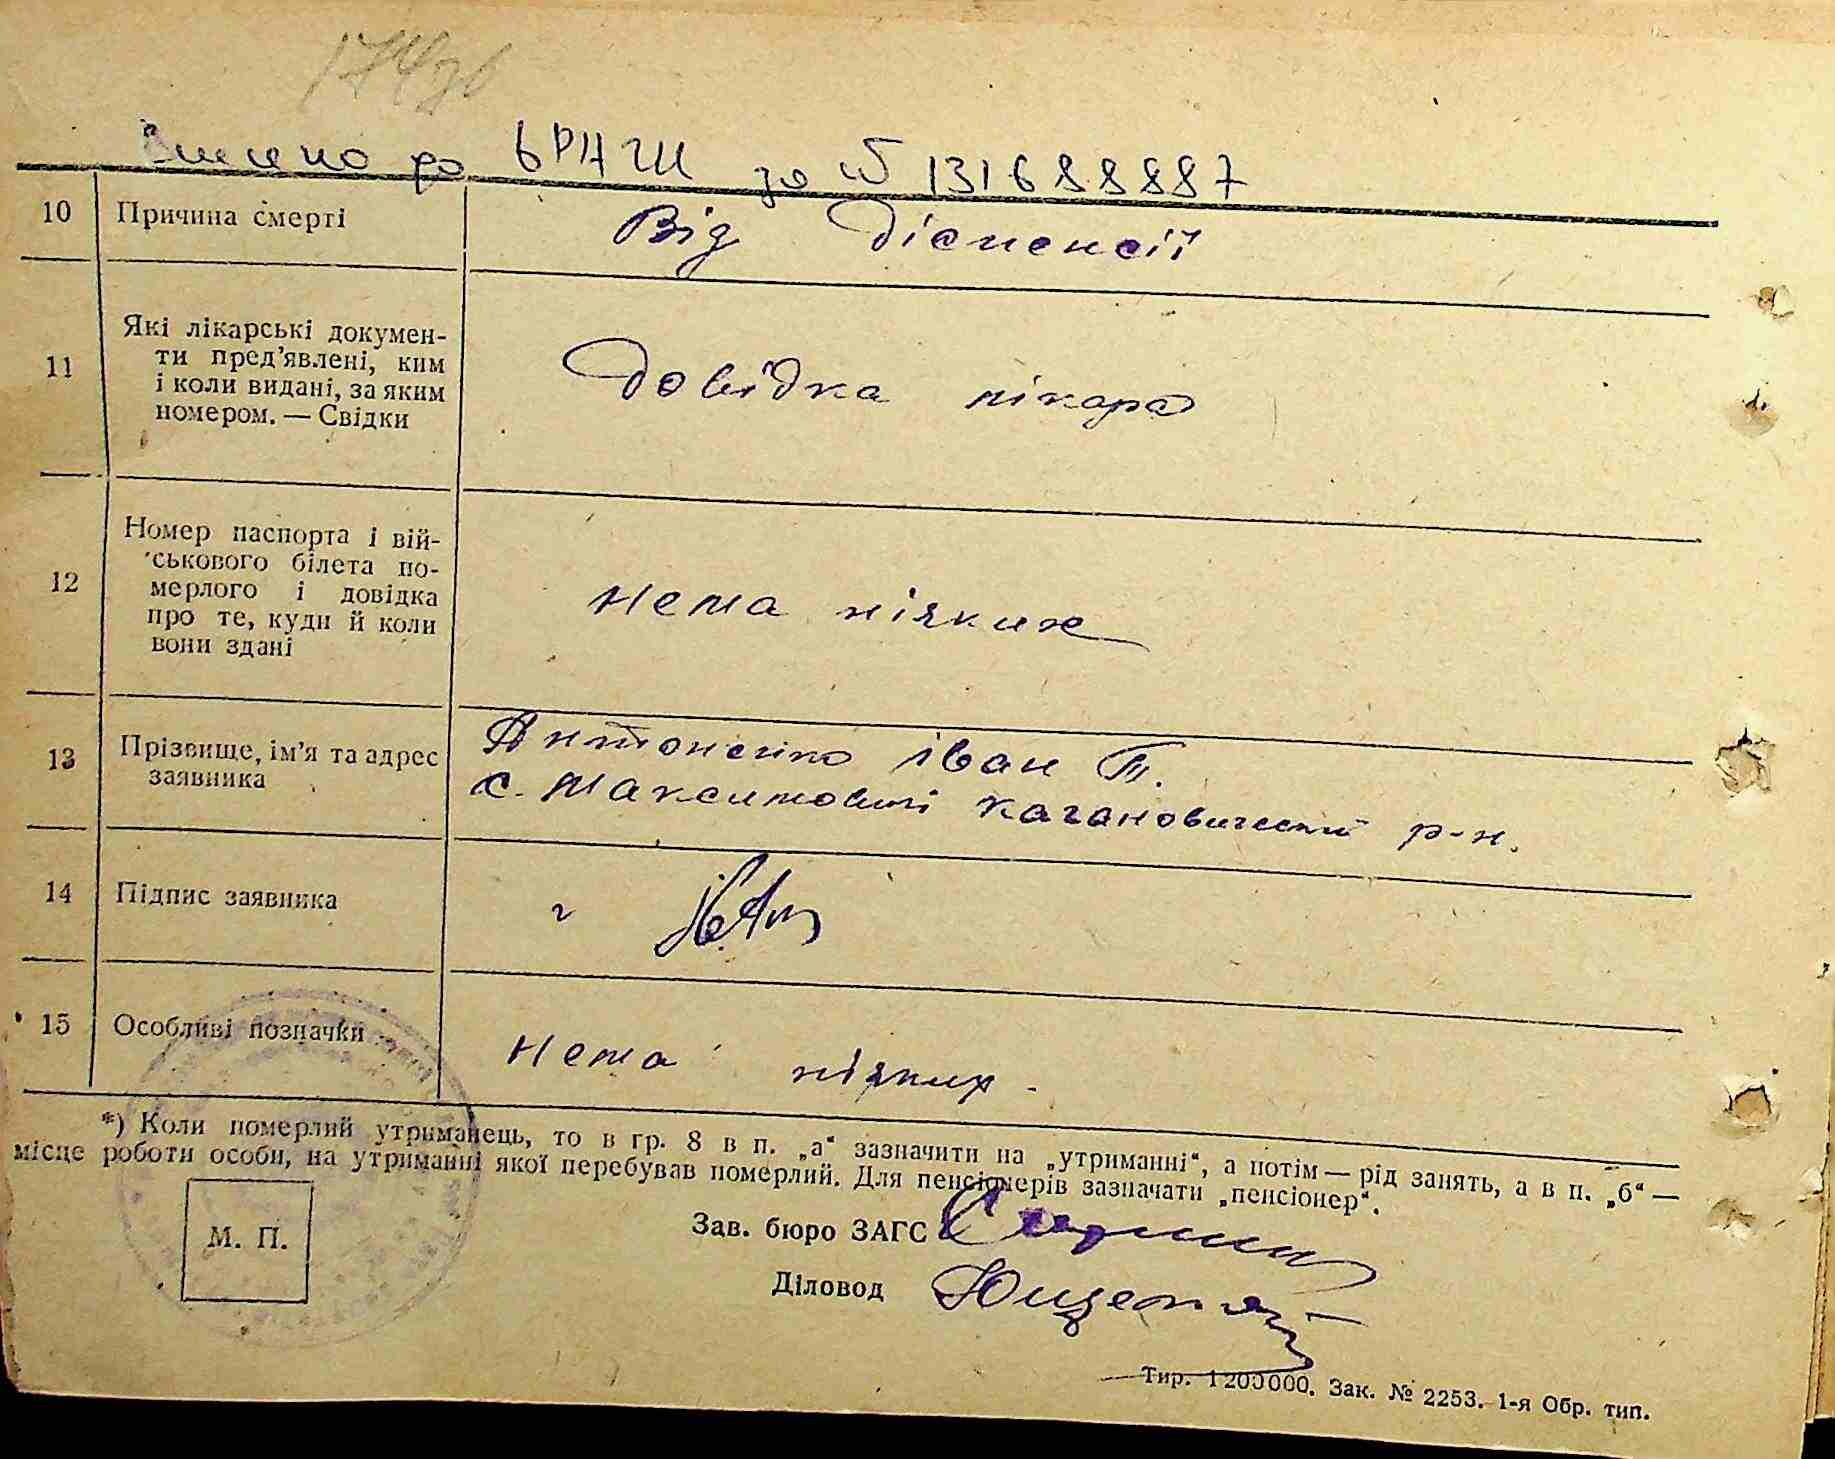 174зв
Внесено до ДРАЦС за № 131688887
10 Причина смерті Від діспепсії
11 Які лікарські докумен-
ти пред'явлені, ким
і коли видані, за яким
номером. — Свідки
Довідка лікара
12 Номер паспорта і вій-
ськового білета по-
мерлого і довідка
про те, куди й коли
вони здані
Нема ніяких
13 Прізвище, ім'я та адрес
заявника
Антоненко Іван П.
с. Максимовичі Кагановический р-н.
14 Підпис заявника
15 Особливі позначки Нема ніяких.
*) Коли померлий утриманець, то в гр. 8 в п. „а“ зазначити на „утриманні“, а потім — рід занять, а в п. „б“ —
місце роботи особи, на утриманні якої перебував померлий. Для пенсіонерів зазначати „пенсіонер“.
М. П.
Зав. бюро ЗАГС
Діловод
Тир. 1200000. Зак. № 2253. 1-я Обр. тип.